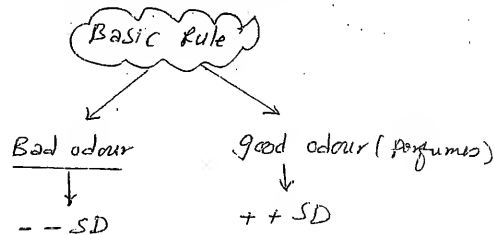 Basic Rule
Bad odour
good odour (perfumes)
-- SD
++ SD